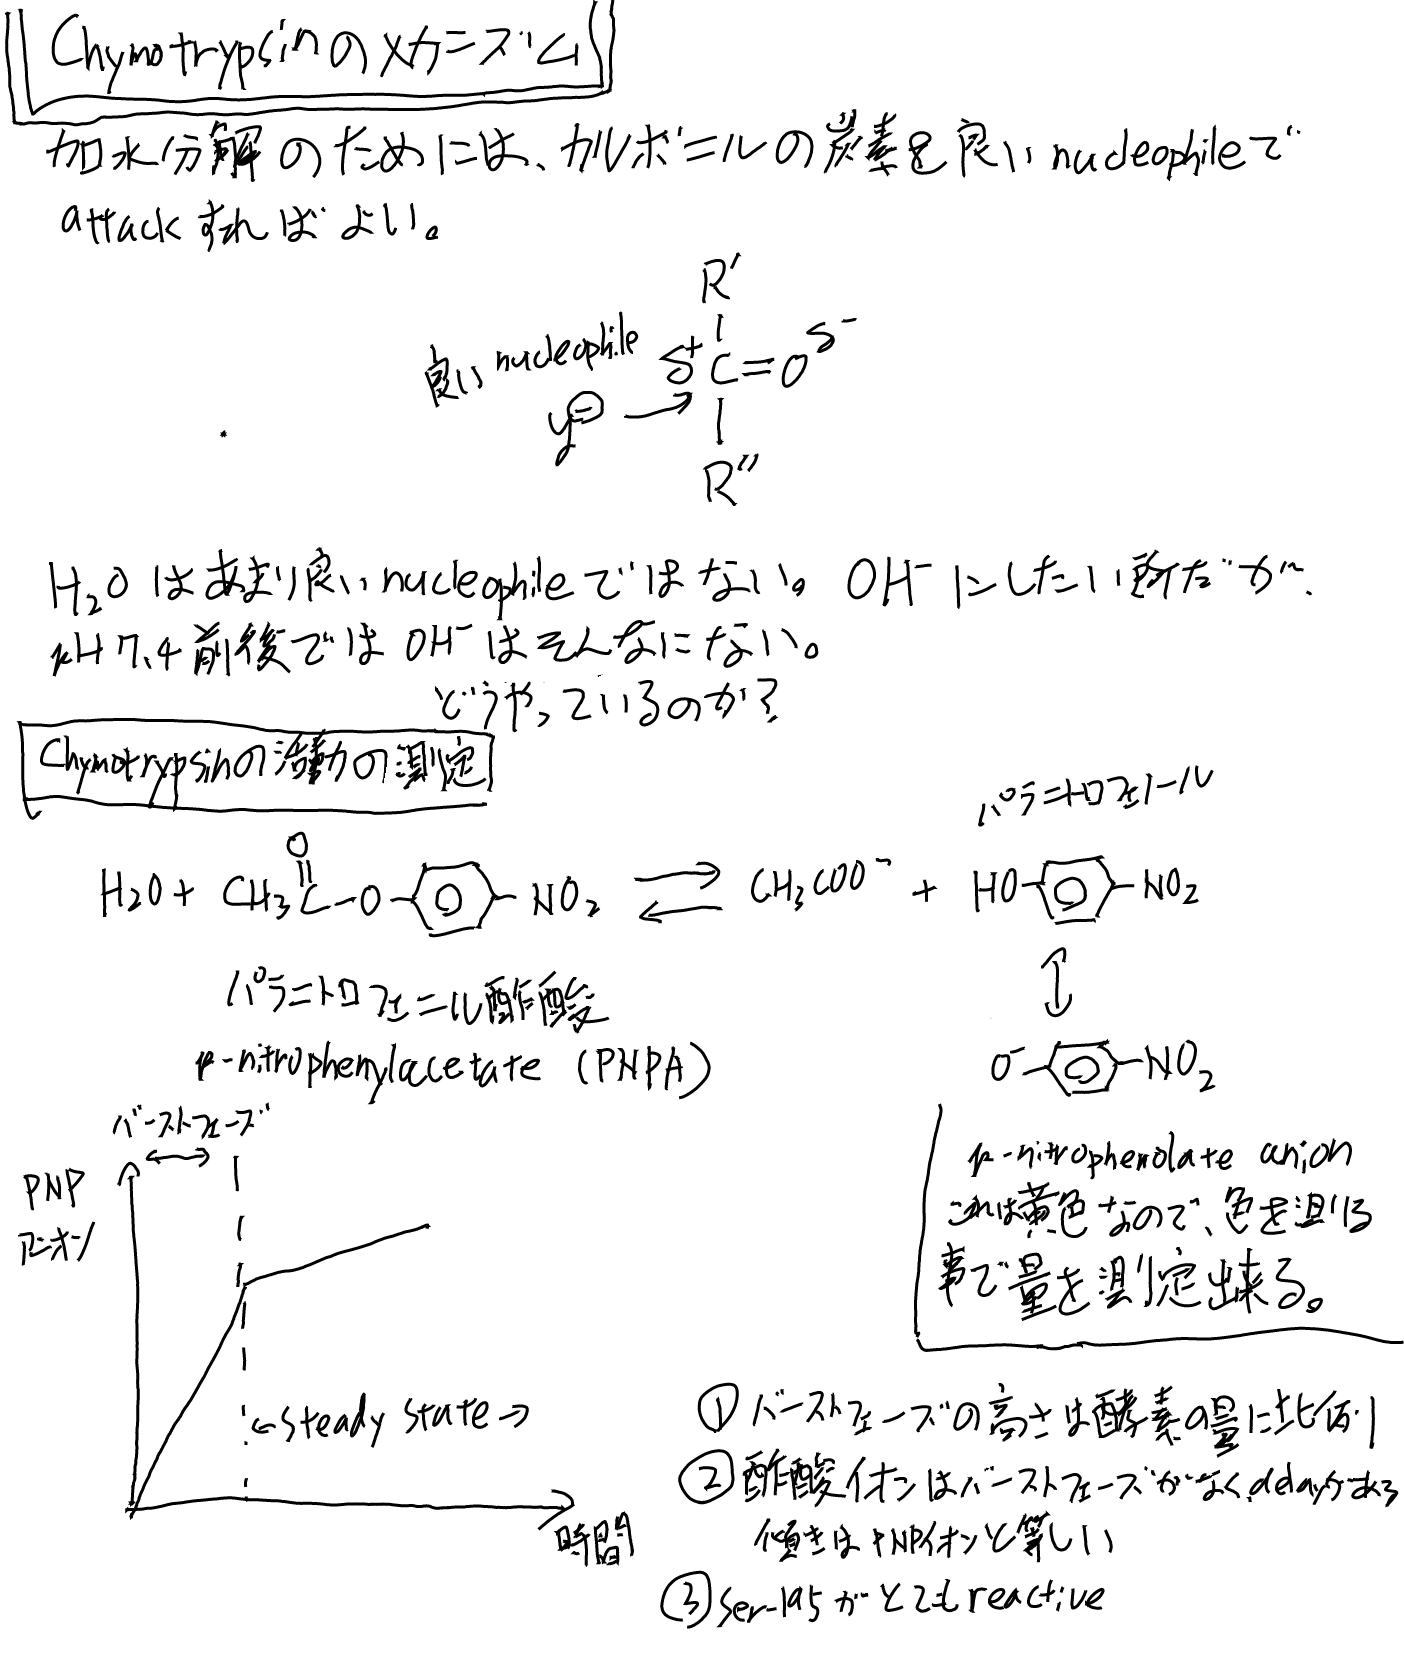 Chymotrypsinのメカニズム
加水分解のためには、カルボニルの炭素を良いnucleophileで
attackすればよい。
R'
良いnucleophile δ+ C=O δ-
y⊖ →
R''
H2Oはあまり良いnucleophileではない。OH-にしたい所だが、
pH7.4前後ではOH-はそんなにない。
どうやっているのか?
Chymotrypsinの活動の測定
パラニトロフェノール
O
H2O + CH3C-O- -NO2 ⇄ CH3COO- + HO- -NO2
パラニトロフェニル酢酸
p-nitrophenylacetate (PNPA)
O- -NO2
バーストフェーズ
PNP
アニオン
p-nitrophenolate anion
これは黄色なので、色を測る
事で量を測定出来る。
←steady state→
時間
①バーストフェーズの高さは酵素の量に比例
②酢酸イオンはバーストフェーズがなく、delayがある
傾きはPNPイオンと等しい
③Ser-195がとてもreactive